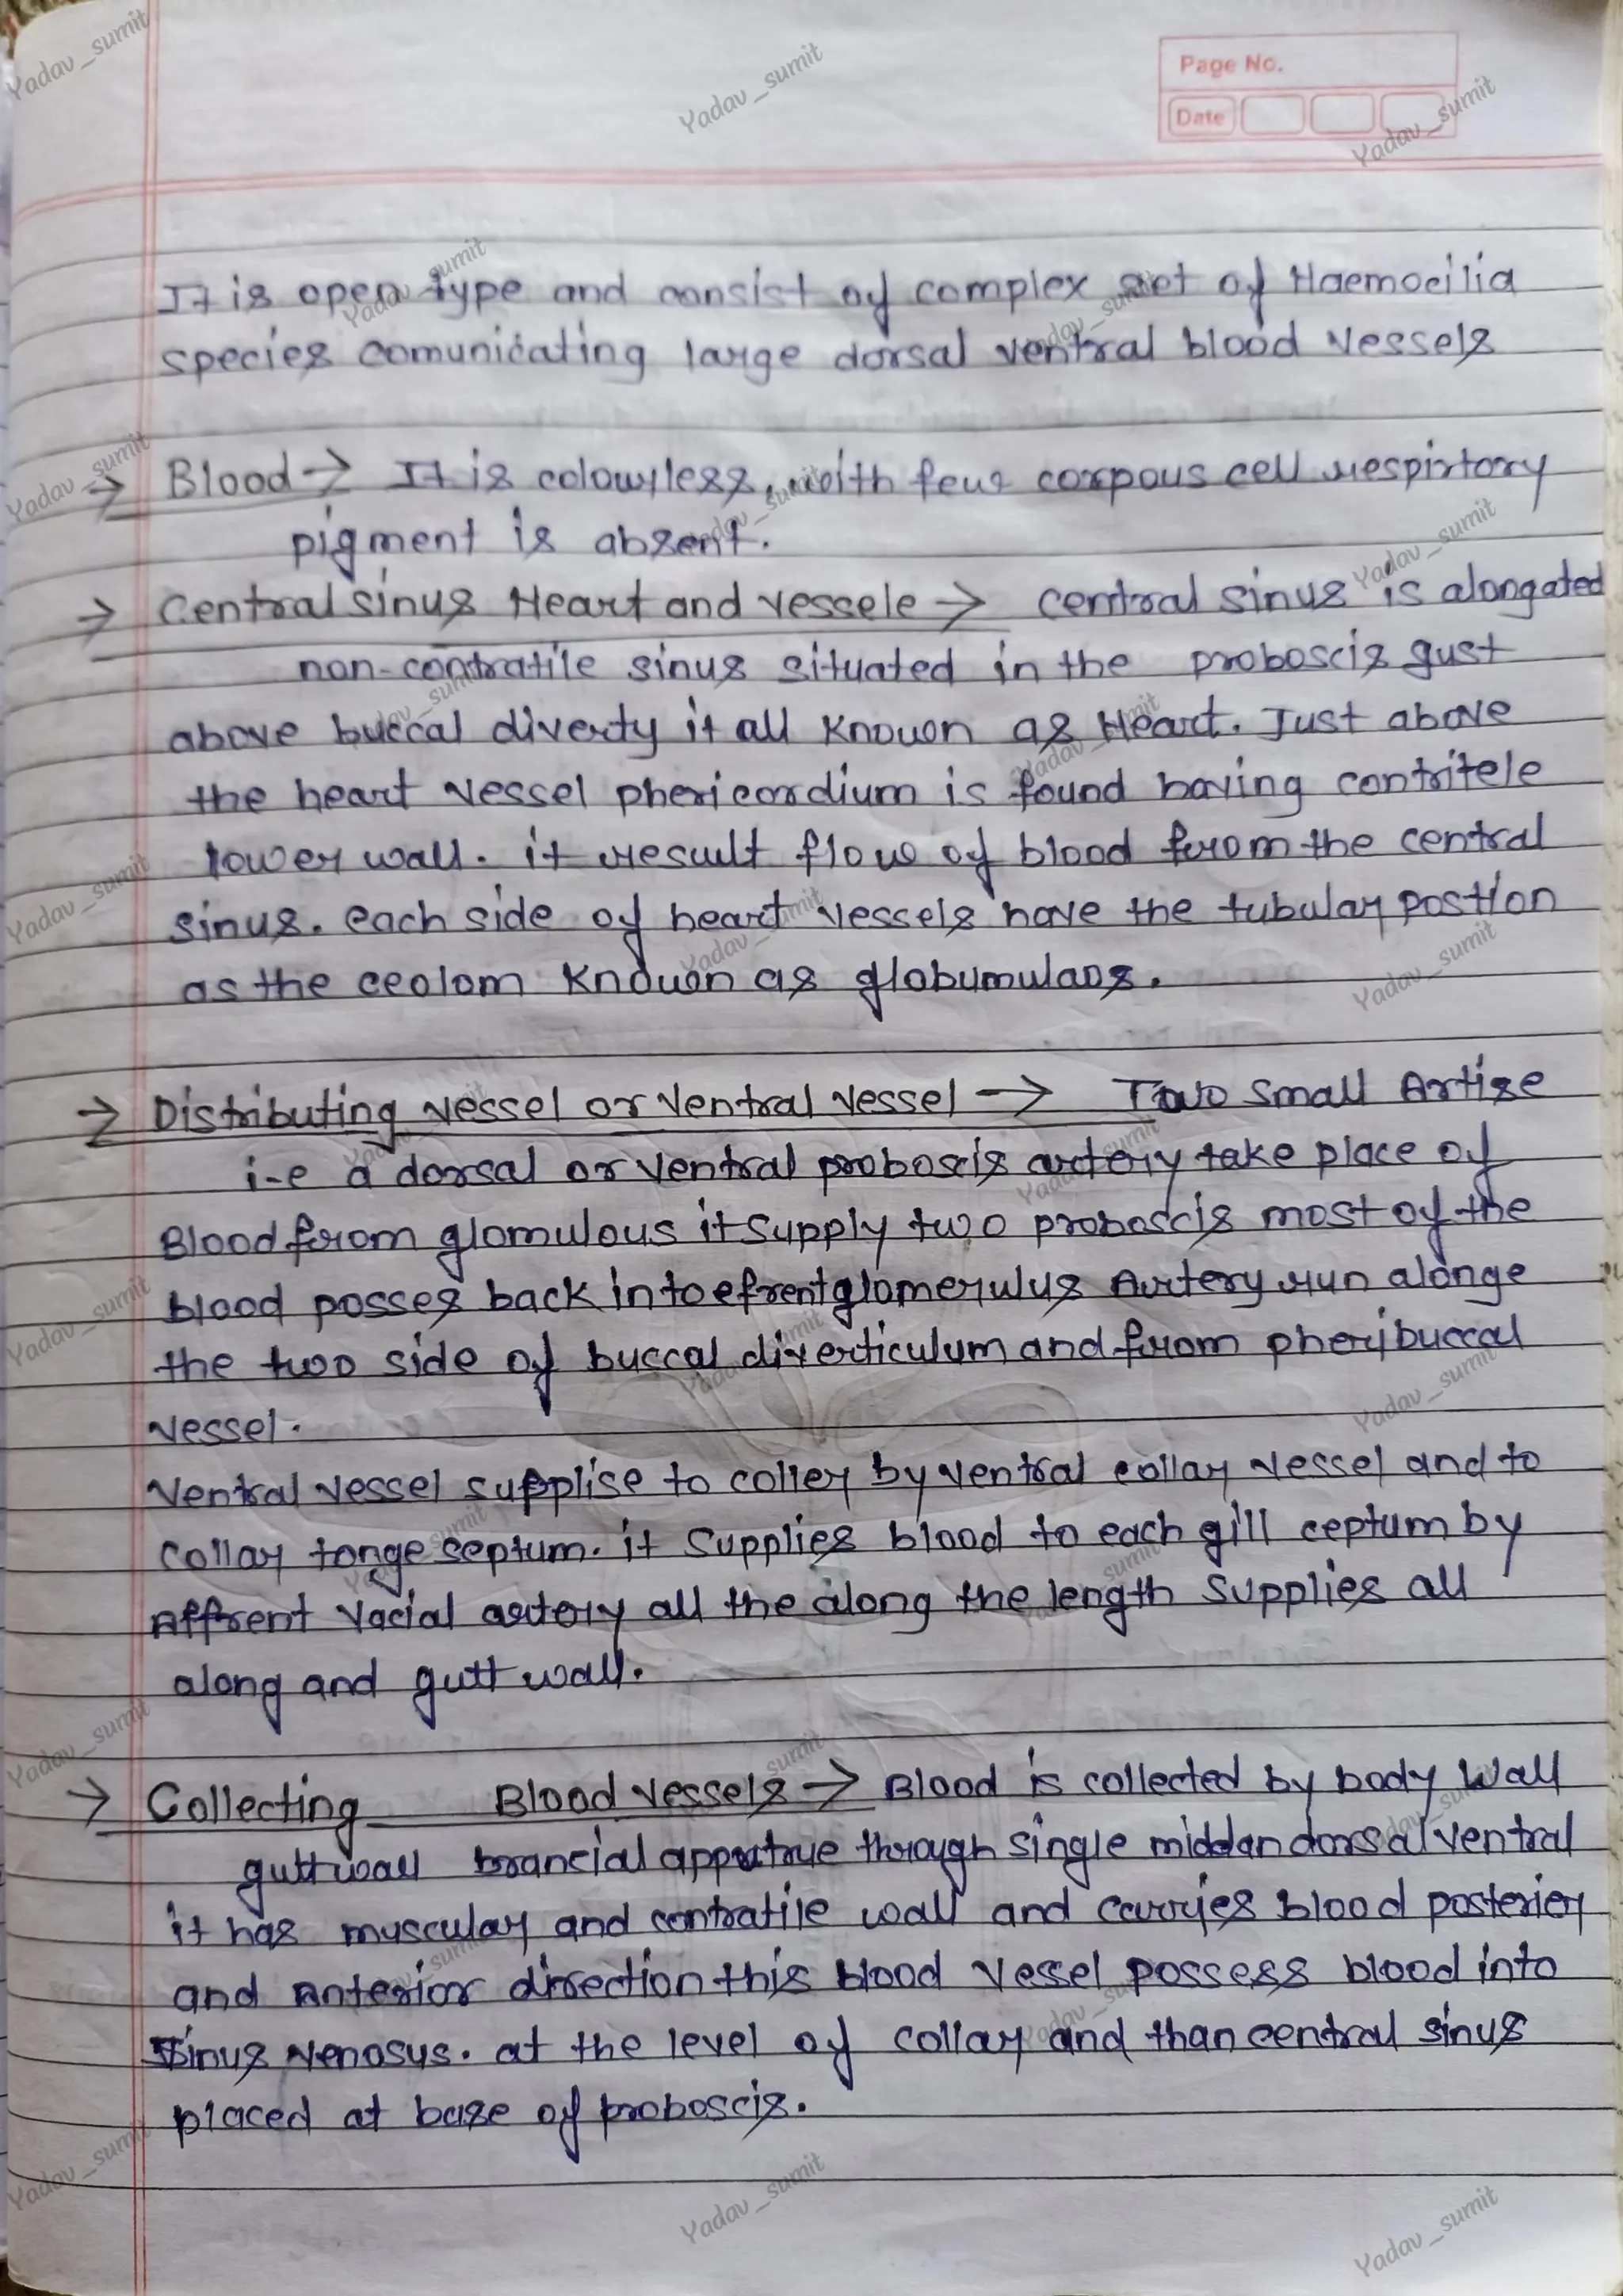 Page No.
Date
It is open type and consist of complex set of Haemocilia
species comunicating large dorsal ventral blood vessels
→ Blood → It is colourless, with few corpous cell respirtory
pigment is absent.
→ Central sinus Heart and vessele → central sinus is alongated
non-contratile sinus situated in the proboscis gust
above buccal diverty it all known as Heart. Just above
the heart vessel phericordium is found having contritele
lower wall. it result flow of blood from the central
sinus. each side of heart vessels have the tubular postion
as the ceolom known as globumulaos.
→ Distributing vessel or ventral vessel → Two small Artise
i-e a dorsal or ventral proboscis artery take place of
Blood from glomulous it supply two proboscis most of the
blood posses back into efrent glomerulus Artery run alonge
the two side of buccal diverticulum and from pheribuccal
vessel.
Ventral vessel supplise to coller by ventral collar vessel and to
collar tonge septum. it supplies blood to each gill ceptum by
Affrent vacial artery all the along the length supplies all
along and gutt wall.
→ Collecting Blood vessels → Blood is collected by body wall
gutt wall brancial appratrue through single middan dorsal ventral
it has muscular and contratile wall and carries blood posterier
and Anterior direction this blood vessel possess blood into
Sinus venosys. at the level of collar and than central sinus
placed at base of proboscis.
Yadav_sumit